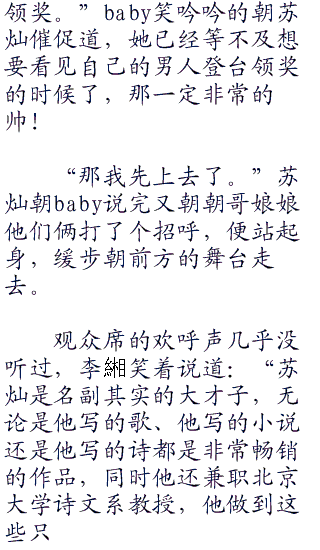 领奖。”baby笑吟吟的朝苏
灿催促道，她已经等不及想
要看见自己的男人登台领奖
的时候了，那一定非常的
帅！
“那我先上去了。”苏
灿朝baby说完又朝朝哥娘娘
他们俩打了个招呼，便站起
身，缓步朝前方的舞台走
去。
观众席的欢呼声几乎没
听过，李緗笑着说道：“苏
灿是名副其实的大才子，无
论是他写的歌、他写的小说
还是他写的诗都是非常畅销
的作品，同时他还兼职北京
大学诗文系教授，他做到这
些只